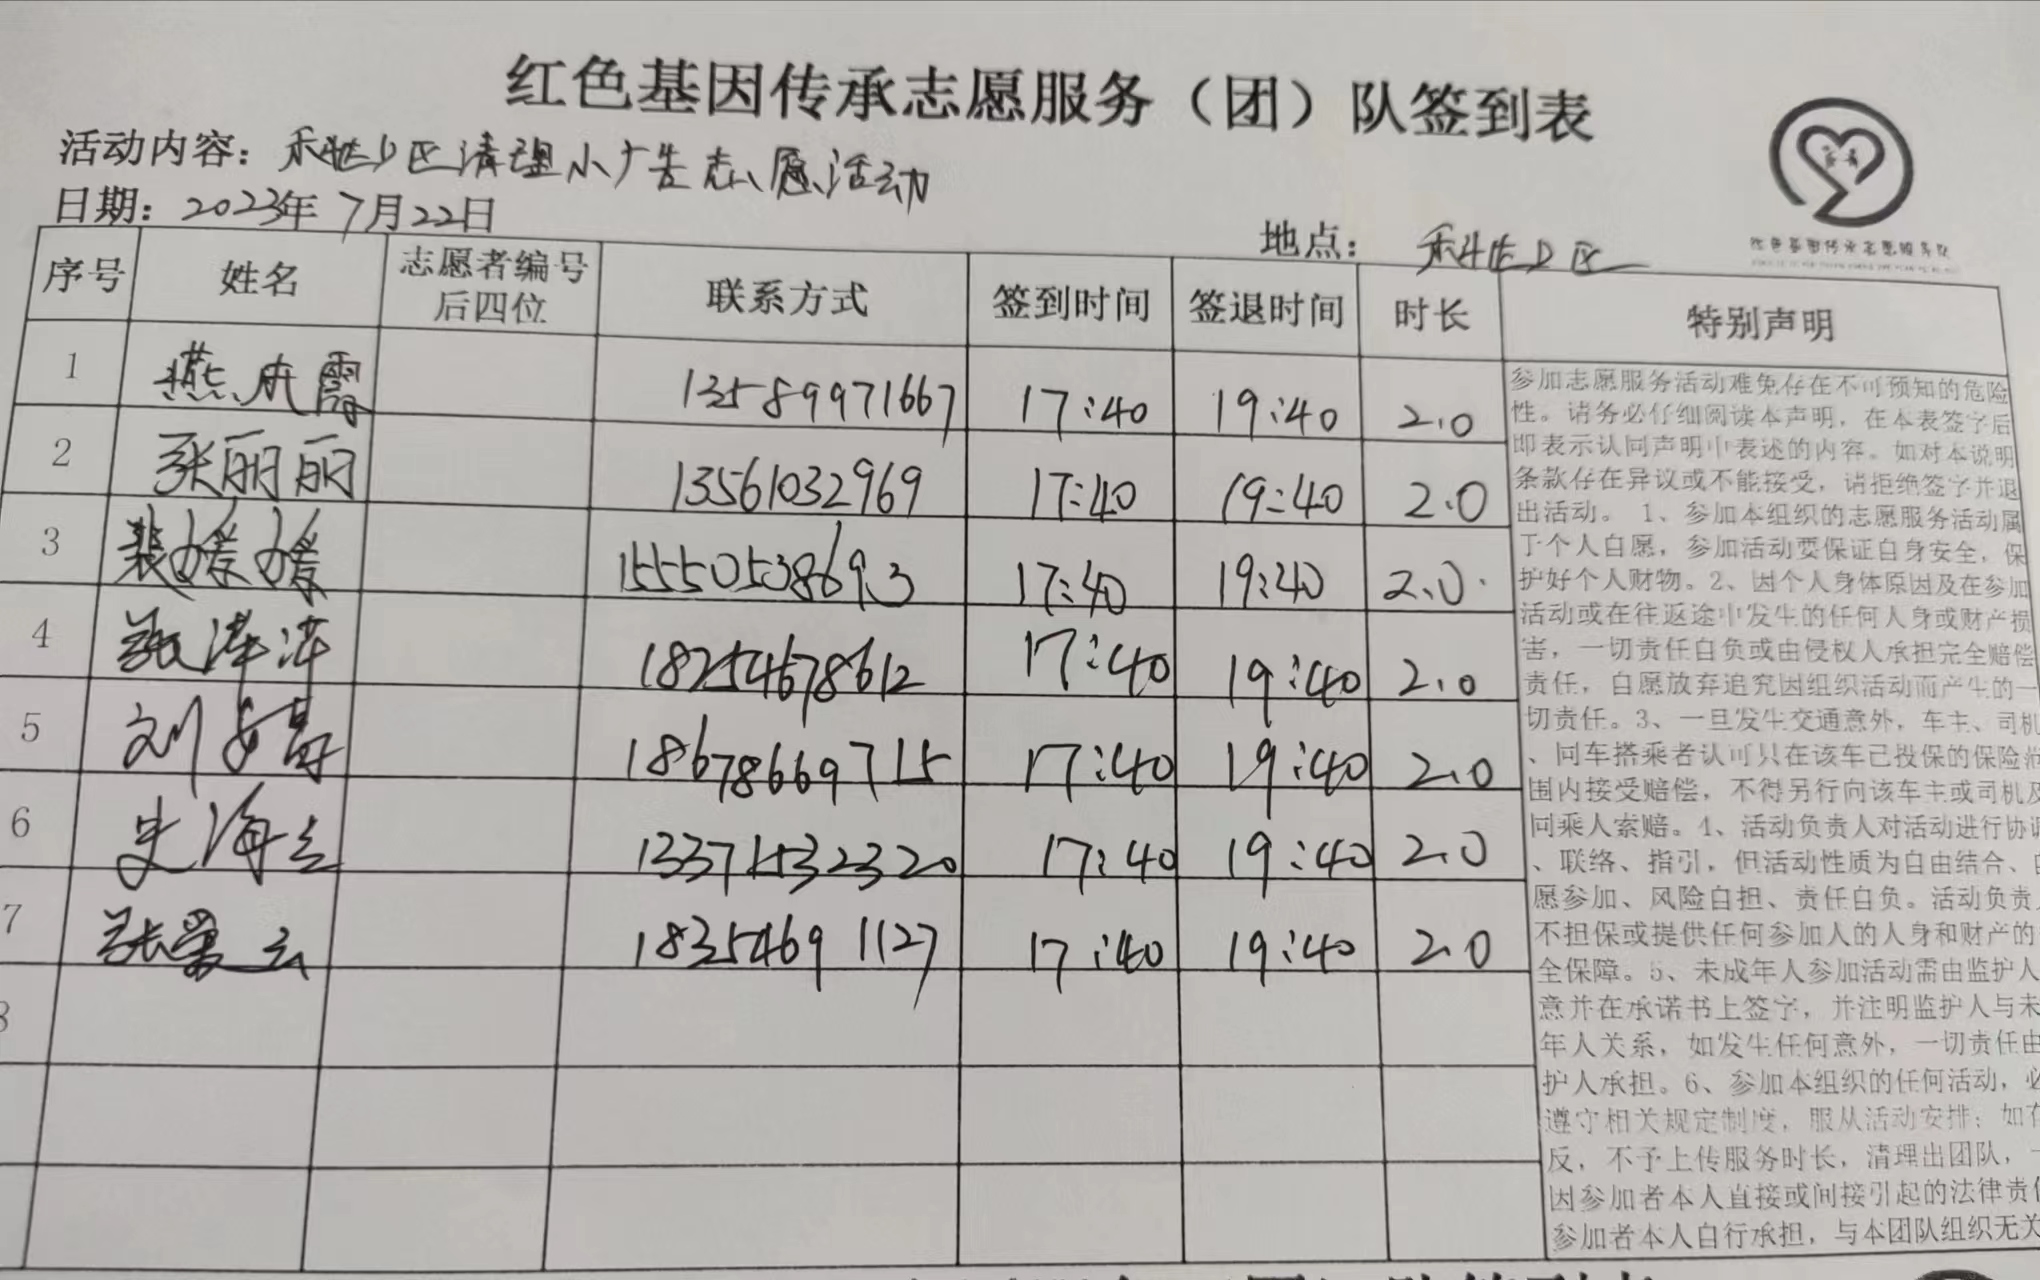 红色基因传承志愿服务（团）队签到表
活动内容：科苑小区清理小广告志愿活动
日期：2023年7月22日
地点：小区
红色基因传承志愿服务队
序号 姓名 志愿者编号后四位 联系方式 签到时间 签退时间 时长 特别声明
1 燕成霞 13589971667 17:40 19:40 2.0
2 张丽丽 13561032969 17:40 19:40 2.0
3 裴媛媛 15550538693 17:40 19:40 2.0
4 萍萍 18254678612 17:40 19:40 2.0
5 刘 18678669715 17:40 19:40 2.0
6 史海兰 13371532320 17:40 19:40 2.0
7 张爱云 18354691127 17:40 19:40 2.0
8
参加志愿服务活动难免存在不可预知的危险
性。请务必仔细阅读本声明，在本表签字后
即表示认同声明中表述的内容。如对本说明
条款存在异议或不能接受，请拒绝签字并退
出活动。1、参加本组织的志愿服务活动属
于个人自愿，参加活动要保证自身安全，保
护好个人财物。2、因个人身体原因及在参加
活动或在往返途中发生的任何人身或财产损
害，一切责任自负或由侵权人承担完全赔偿
责任，自愿放弃追究因组织活动而产生的一
切责任。3、一旦发生交通意外，车主、司机
、同车搭乘者认可只在该车已投保的保险范
围内接受赔偿，不得另行向该车主或司机及
同乘人索赔。4、活动负责人对活动进行协调
、联络、指引，但活动性质为自由结合、自
愿参加、风险自担、责任自负。活动负责人
不担保或提供任何参加人的人身和财产的
全保障。5、未成年人参加活动需由监护人
意并在承诺书上签字，并注明监护人与未
年人关系，如发生任何意外，一切责任由
护人承担。6、参加本组织的任何活动，必
遵守相关规定制度，服从活动安排；如有
反，不予上传服务时长，清理出团队，一
因参加者本人直接或间接引起的法律责任
参加者本人自行承担，与本团队组织无关